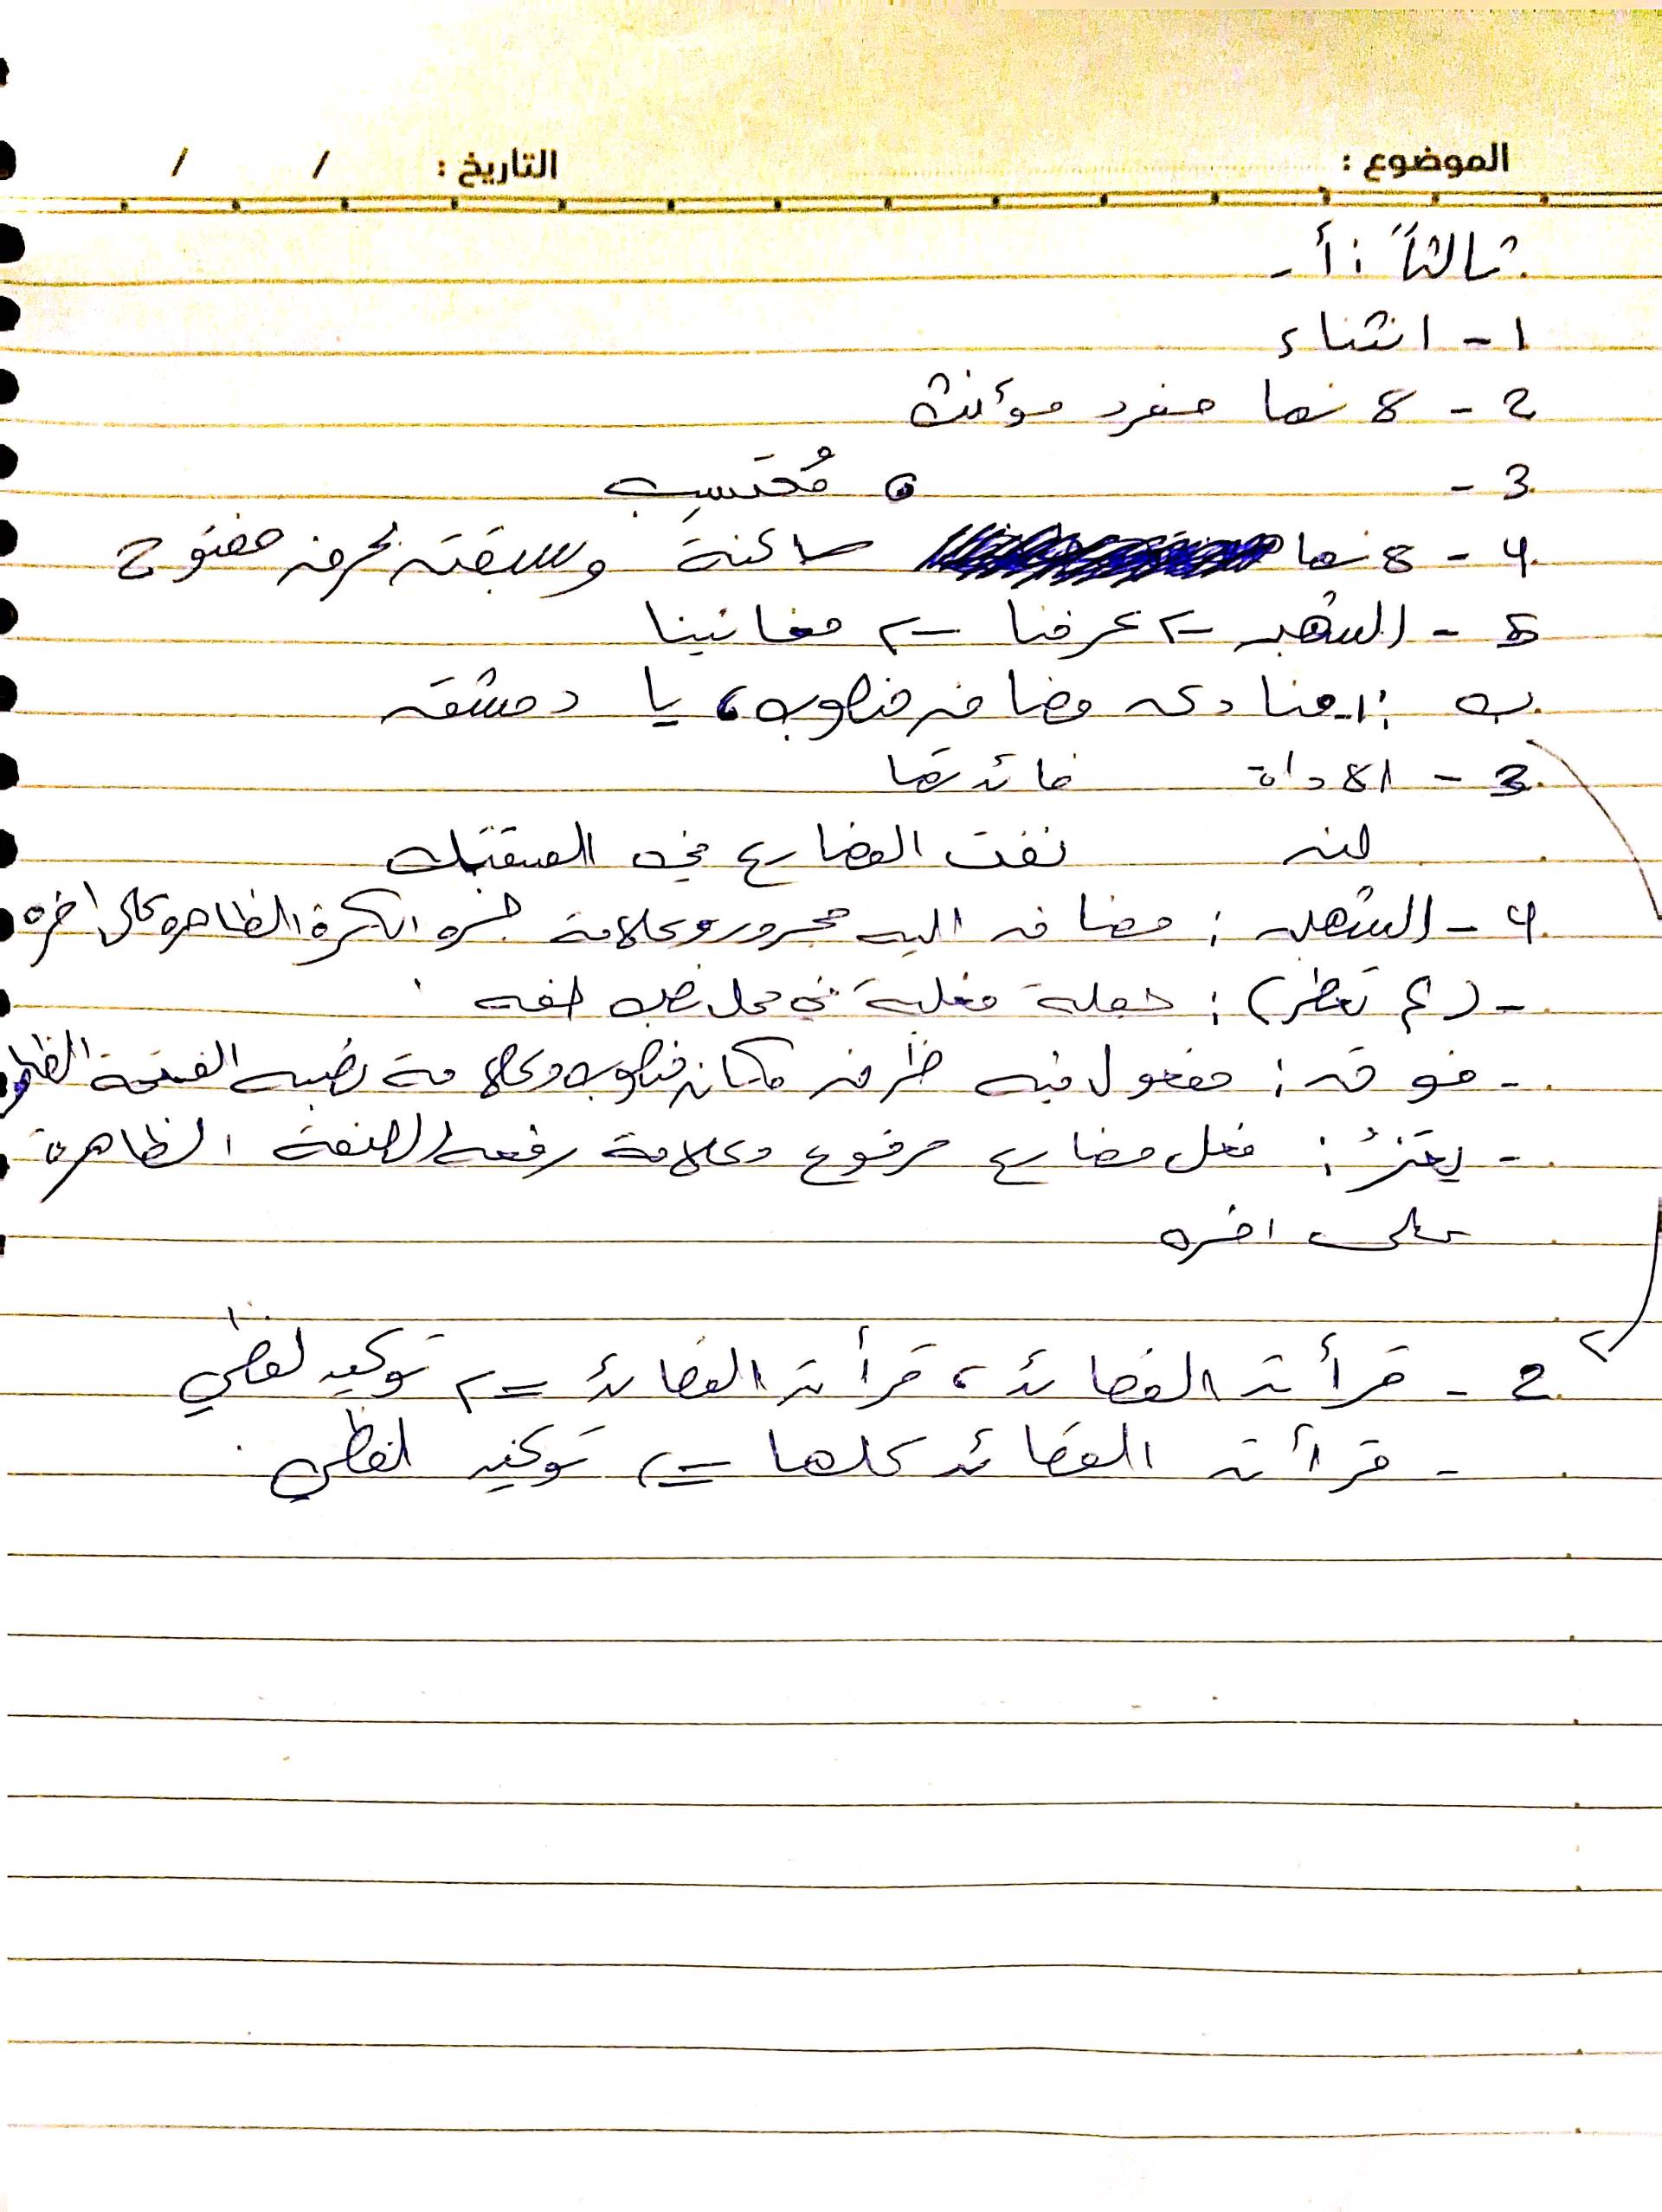 الموضوع : التاريخ : / /
ثالثاً : أ -
1 - انثناء
2 - لأنها مفرد مؤنث
3 - مُحتسِب
4 - لأنها ساكنة وسبقت بحرف مفتوح
5 - الشهب => عرفنا => مغانينا
ب : 1 - منادى مضاف منصوب، يا دمشق
3 - الأداة فائدتها
لن نفت المضارع في المستقبل
4 - الشهب : مضاف اليه مجرور وعلامة جره الكسرة الظاهرة على أخره
- (لم تعطر) : جملة فعلية في محل نصب صفة
- فوق : مفعول فيه ظرف مكان منصوب وعلامة نصبه الفتحة
- يعتزُ : فعل مضارع مرفوع وعلامة رفعه الضمة الظاهرة
على اخره
2 - قرأت القصائد، قرأت القصائد => توكيد لفظي
- قرأت القصائد كلها => توكيد لفظي